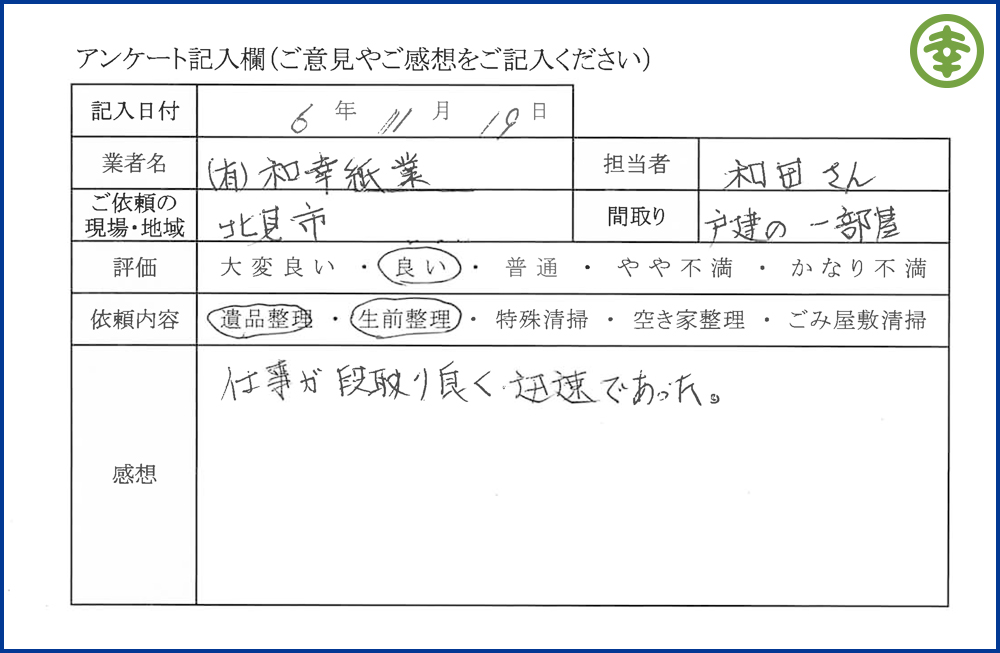 幸
アンケート記入欄(ご意見やご感想をご記入ください)
記入日付 6 年 11 月 19 日
業者名 (有)和幸紙業 担当者 和田さん
ご依頼の現場・地域 北見市 間取り 戸建の一部屋
評価 大変良い ・ 良い ・ 普通 ・ やや不満 ・ かなり不満
依頼内容 遺品整理 ・ 生前整理 ・ 特殊清掃 ・ 空き家整理 ・ ごみ屋敷清掃
感想 仕事が段取り良く迅速であった。